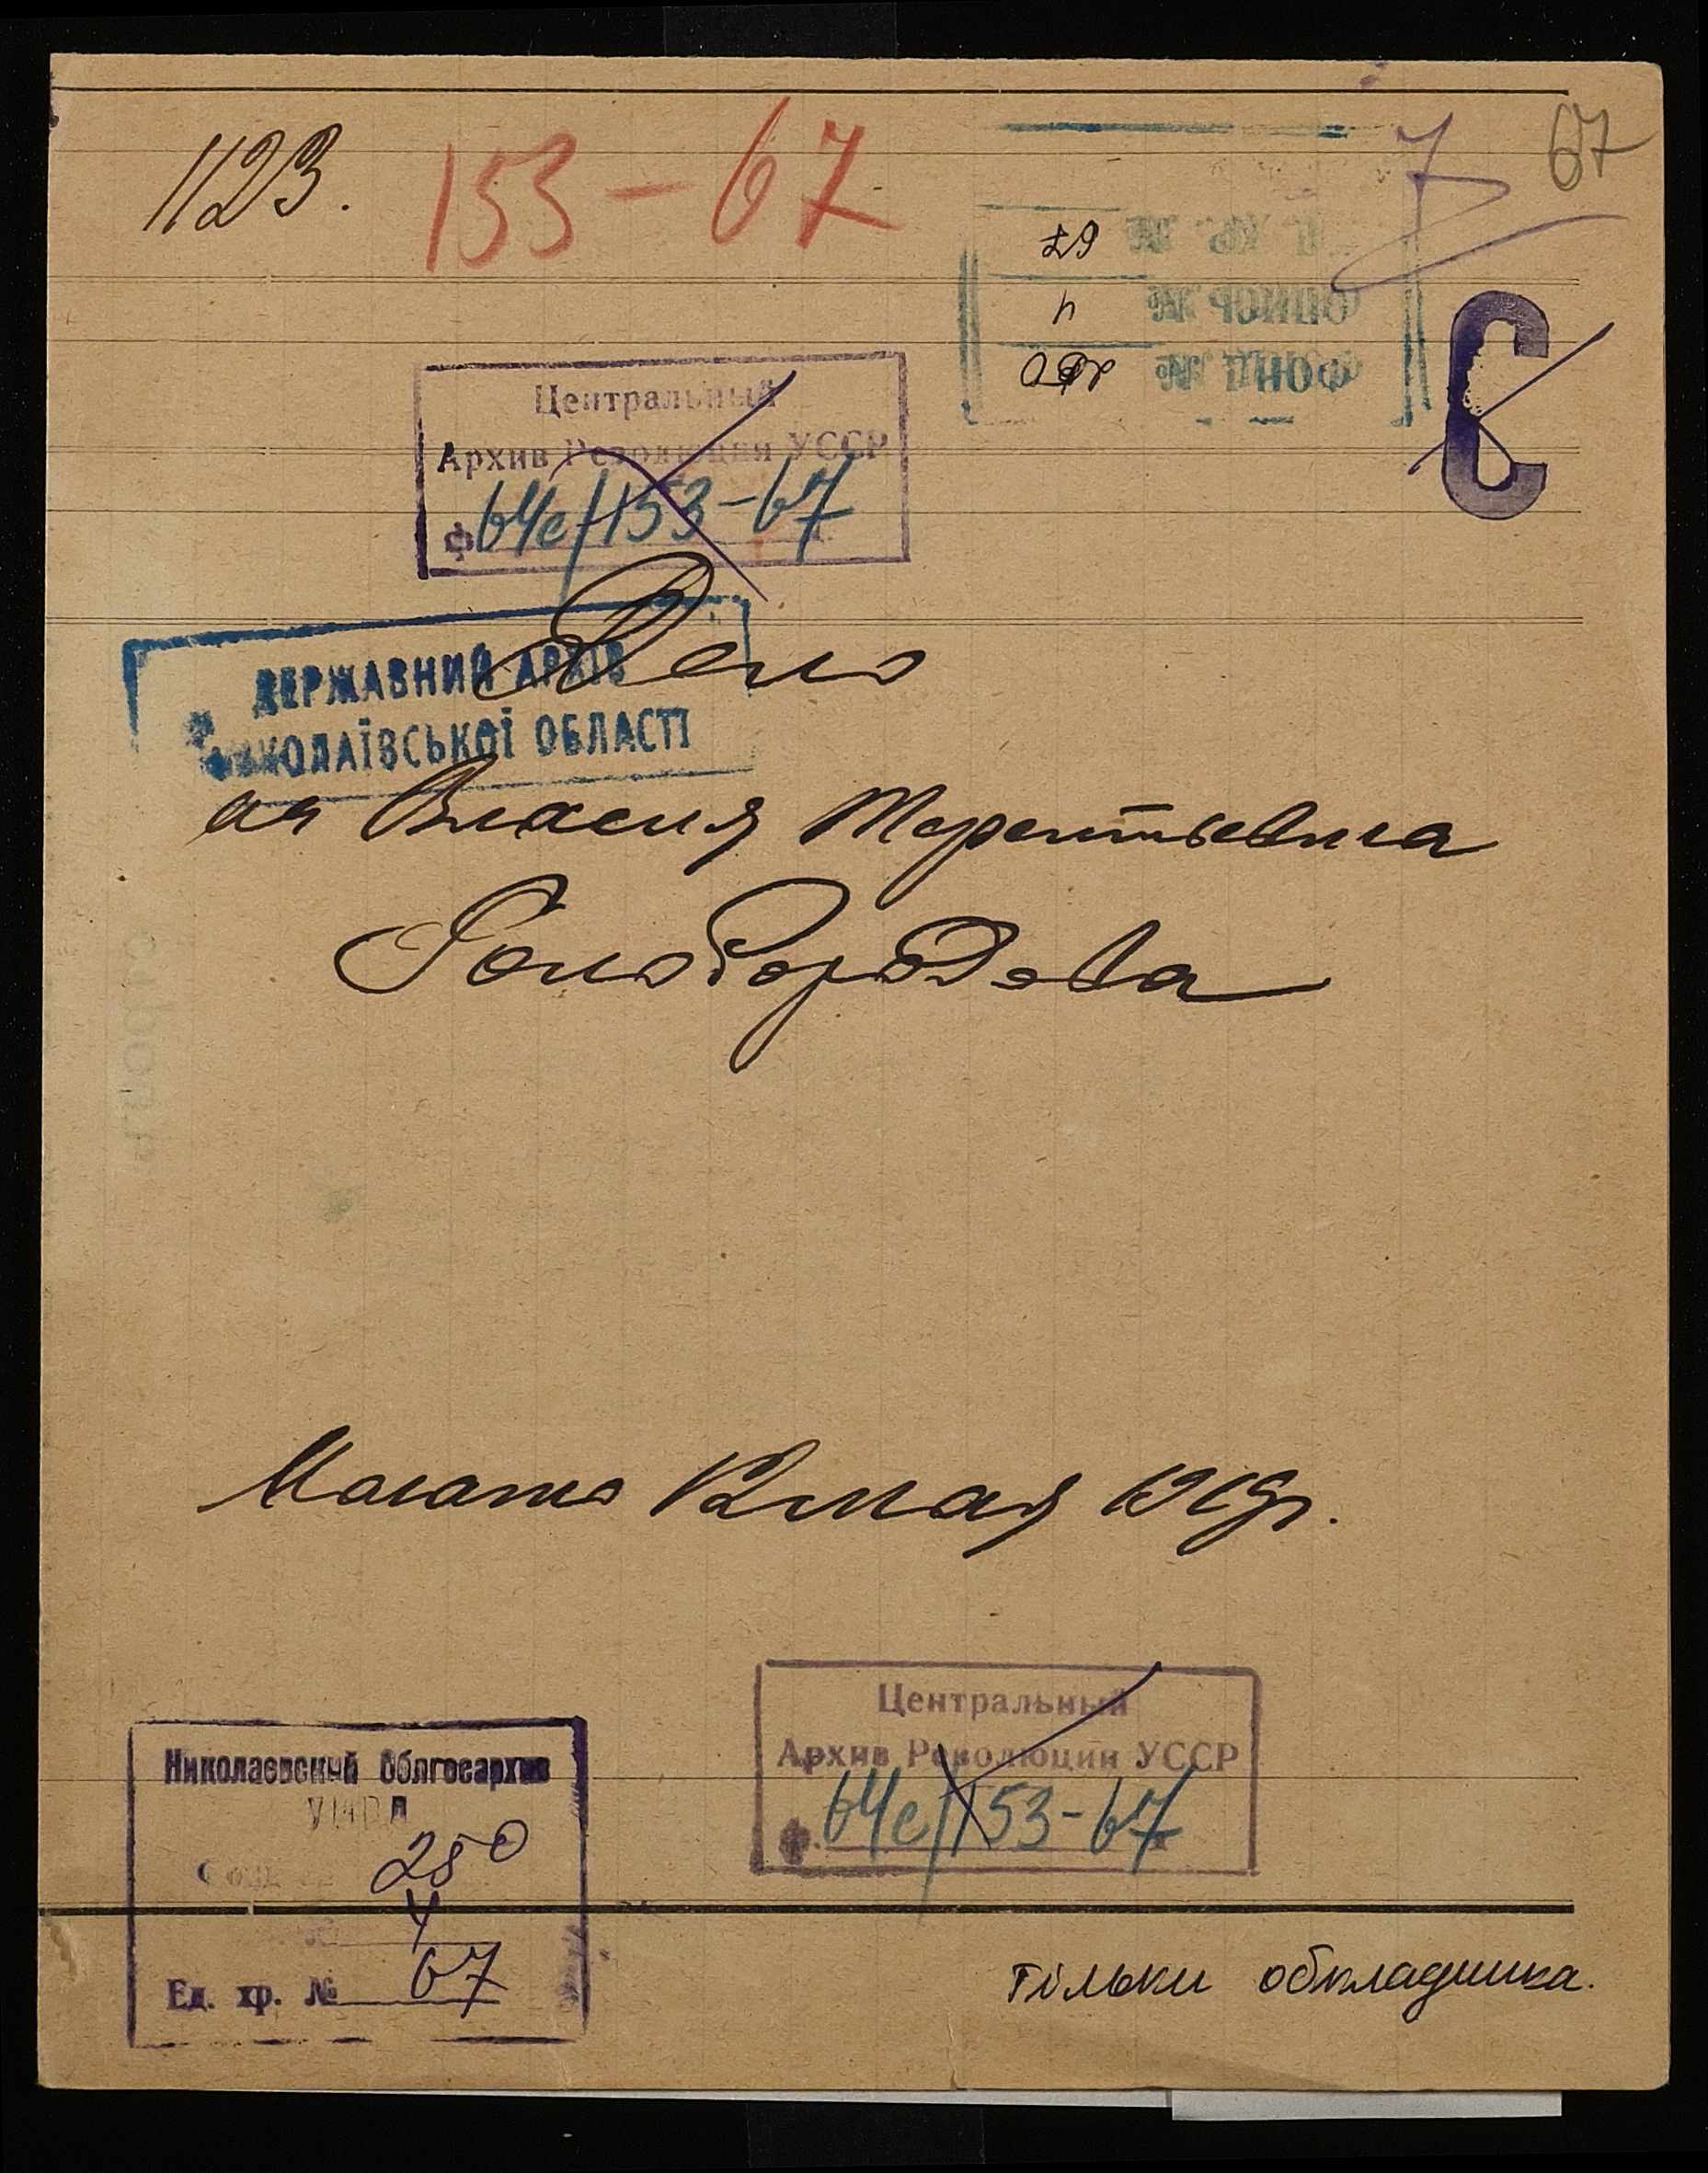 1123. 153-67
67
Ед. хр. № 67
Опись № 4
Фонд № 250
С
Центральный
Архив Революции УССР
ф. 64с/153-67
Дело
ДЕРЖАВНИЙ АРХІВ
МИКОЛАЇВСЬКОЇ ОБЛАСТІ
Власия Терентьевича
Голобородова
Начато 12 мая 1919г.
Центральный
Архив Революции УССР
ф. 64с/153-67
Николаевский Облгосархив
250
4
Ед. хр. № 67
тільки обкладинка.